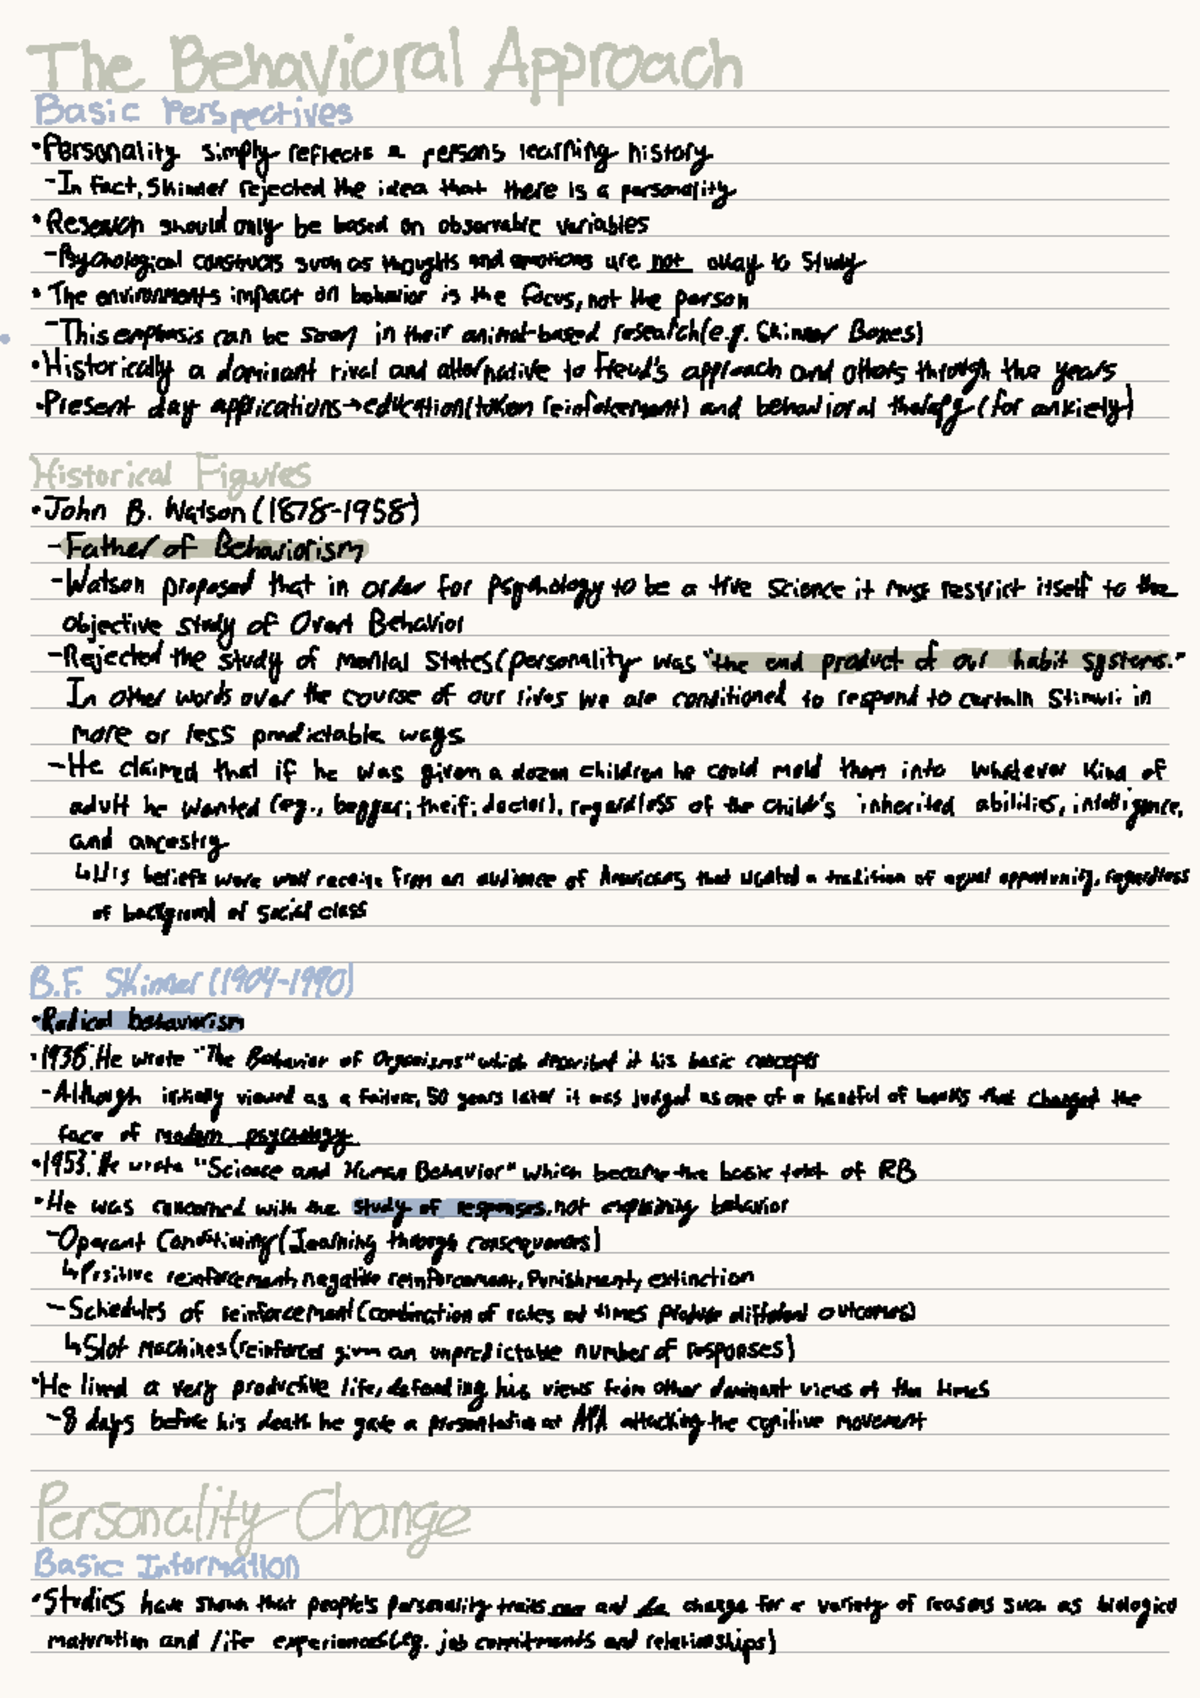 The Behavioral Approach
Basic Perspectives
•Personality simply reflects a persons learning history
-In fact, Skinner rejected the idea that there is a personality
•Research should only be based on observable variables
-Psychological constructs such as thoughts and emotions are not okay to study
•The environments impact on behavior is the focus, not the person
-This emphasis can be seen in their animal-based research (e.g. Skinner Boxes)
•Historically a dominant rival and alternative to Freud's approach and others through the years
•Present day applications→education (token reinforcement) and behavioral therapy (for anxiety)
Historical Figures
•John B. Watson (1878-1958)
-Father of Behaviorism
-Watson proposed that in order for psychology to be a true science it must restrict itself to the
objective study of Overt Behavior
-Rejected the study of mental states (personality was "the end product of our habit systems."
In other words over the course of our lives we are conditioned to respond to certain stimuli in
more or less predictable ways
-He claimed that if he was given a dozen children he could mold them into whatever kind of
adult he wanted (eg., beggar; theif; doctor), regardless of the child's inherited abilities, intelligence,
and ancestry
↳His beliefs were well receive from an audience of Americans that a tradition of equal opportunity, regardless
of background of social class
B.F. Skinner (1904-1990)
•Radical behaviorism
•1938: He wrote "The Behavior of Organisms" which described it his basic concepts
-Although initially viewed as a failure, 50 years later it was judged as one of a handful of books that changed the
face of modern psychology
•1953: He wrote "Science and Human Behavior" which became the basic text of RB
•He was concerned with the study of responses, not explaining behavior
-Operant Conditioning (learning through consequences)
↳Positive reinforcement, negative reinforcement, Punishment, extinction
-Schedules of reinforcement (combination of rates and times produce different outcomes)
↳Slot machines (reinforcer given an unpredictable number of responses)
•He lived a very productive life, defending his views from other dominant views of the times
-8 days before his death he gave a presentation at APA attacking the cognitive movement
Personality Change
Basic Information
•Studies have shown that people's personality traits can and do change for a variety of reasons such as biologica
maturation and life experiences (eg. job commitments and relationships)